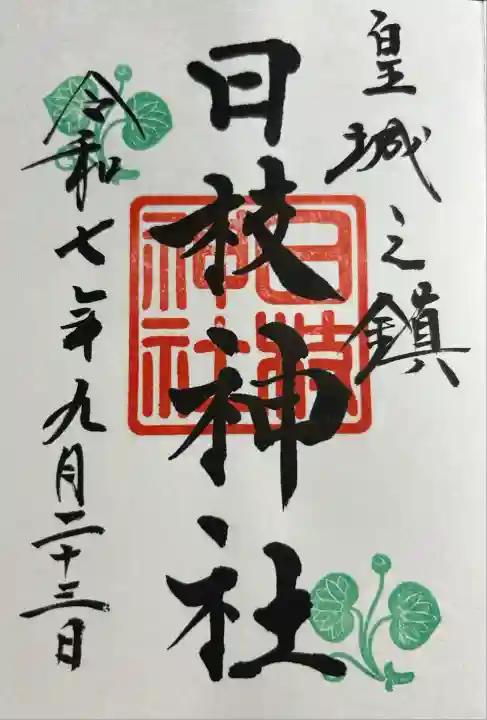 皇城之鎮
日枝神社
日枝
神社
令和七年九月二十三日